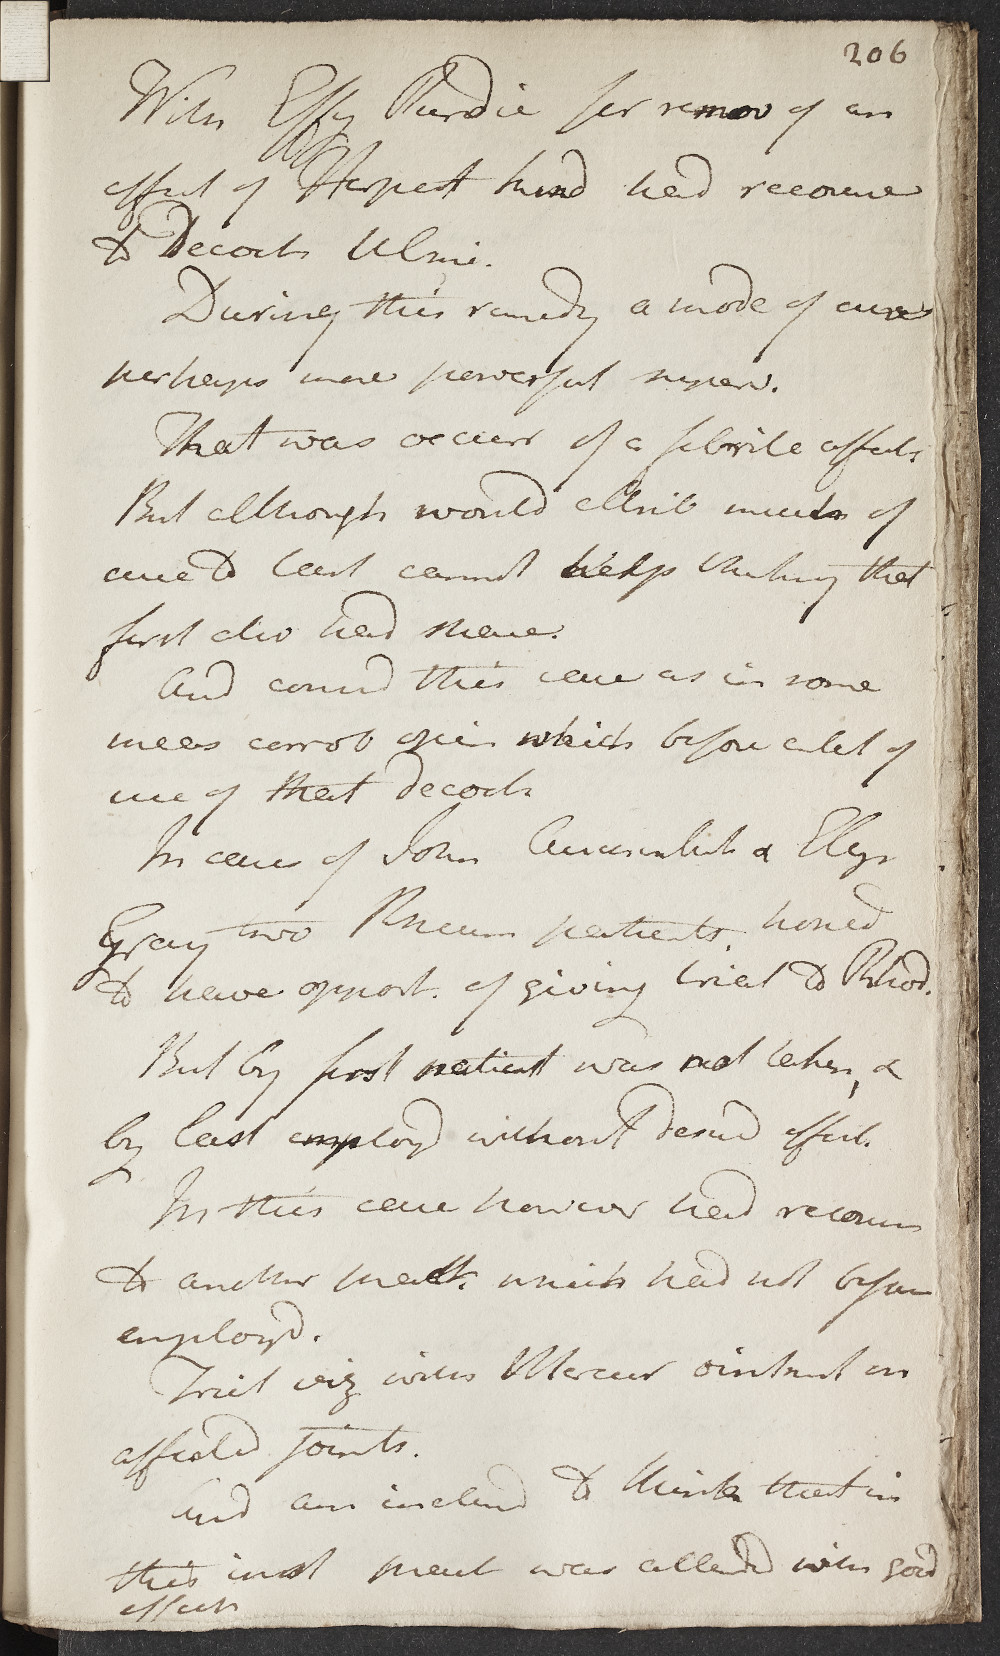 206
With Effy Purdie for remov of an
affect of Herpet kind had recourse
to Decoct Ulmi.
During this remedy a mode of cure
perhaps more powerful superv.
That was occurr of a febrile affect.
But although would attrib much of
cure to last cannot help thinking that
first also had share.
And consid this case as in some
meas corrob opin which before entert of
use of that decoct
In cases of John & Eliz
Gray two Rheum patients. hoped
to have opport. of giving trial to Rhod.
But by first patient was not taken, &
by last employd without desird effect.
In this case however had recourse
to another pract. which had not before
employd.
Trial viz with Mercur ointment on
affected joints.
And am inclind to think that in
this inst pract was attended with good
effects